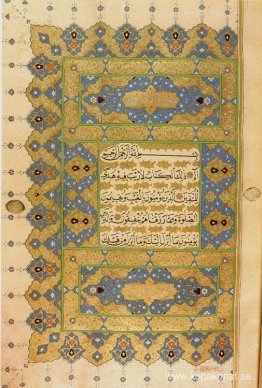 بسم الله الرحمن الرحيم
الم ذلك الكتاب لا ريب فيه هدى
للمتقين الذين يؤمنون بالغيب ويقيمون
الصلوة ومما رزقناهم ينفقون والذين
يؤمنون بما انزل اليك وما انزل من قبلك
www.kopiakonst.se